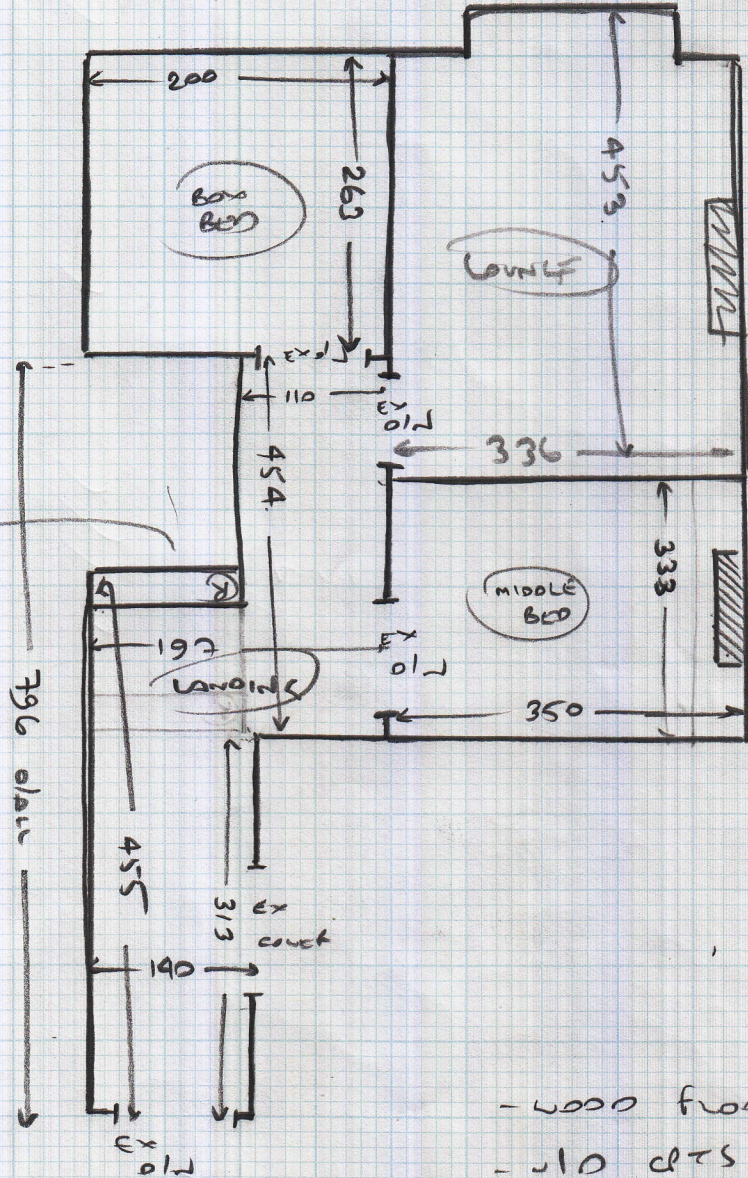 200
263
BOX
BED
453
LOUNGE
EX
110
EX
336
454
333
MIDDLE
BED
197
LANDING
EX
350
796
455
313
EX
COVER
140
EX
- WOOD FLOO